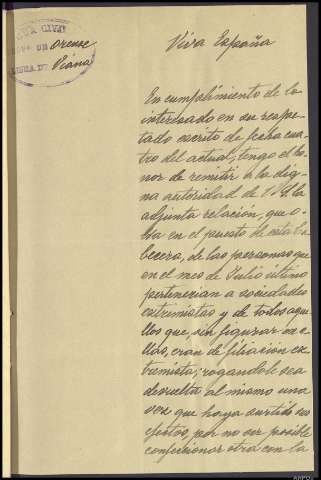 GUARDIA CIVIL
Orense
LINEA DE Viana
Viva España
En cumplimiento de lo
interesado en su respe-
tado escrito de fecha cua-
tro del actual, tengo el ho-
nor de remitir a la dig-
na autoridad de V.S. la
adjunta relación, que o-
bra en el puesto de esta ca-
becera, de las personas que
en el mes de Julio último
pertenecian a sociedades
extremistas y de todos aque-
llos que, sin figurar en e-
llas, eran de filiación ex-
tremista; rogandole sea
devuelta al mismo una
vez que haya surtido sus
efectos, por no ser posible
confeccionar otra con la